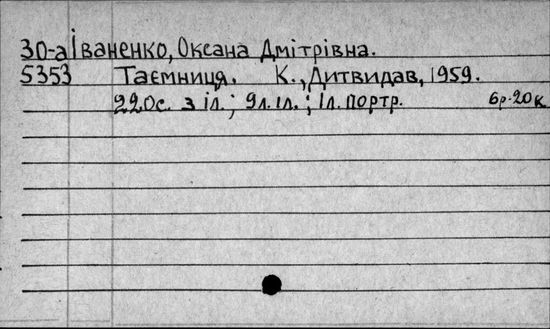 30-а Іваненко, Оксана Дмітрівна.
5353 Таємниця. К., Дитвидав, 1959.
220с. з іл.; 9л. іл.; 1л. портр. 6р.20к